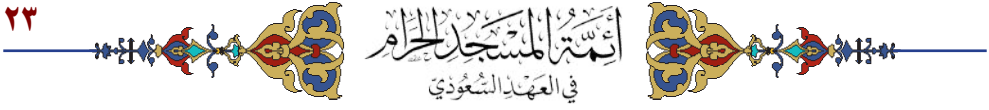 ٢٣
أَئِمَّةُ المَسْجِدِ الحَرَامِ
في العَهْدِ السُّعُودِيِّ